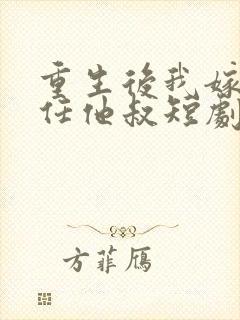 重生後我嫁
任他叔短劇
方菲鴈